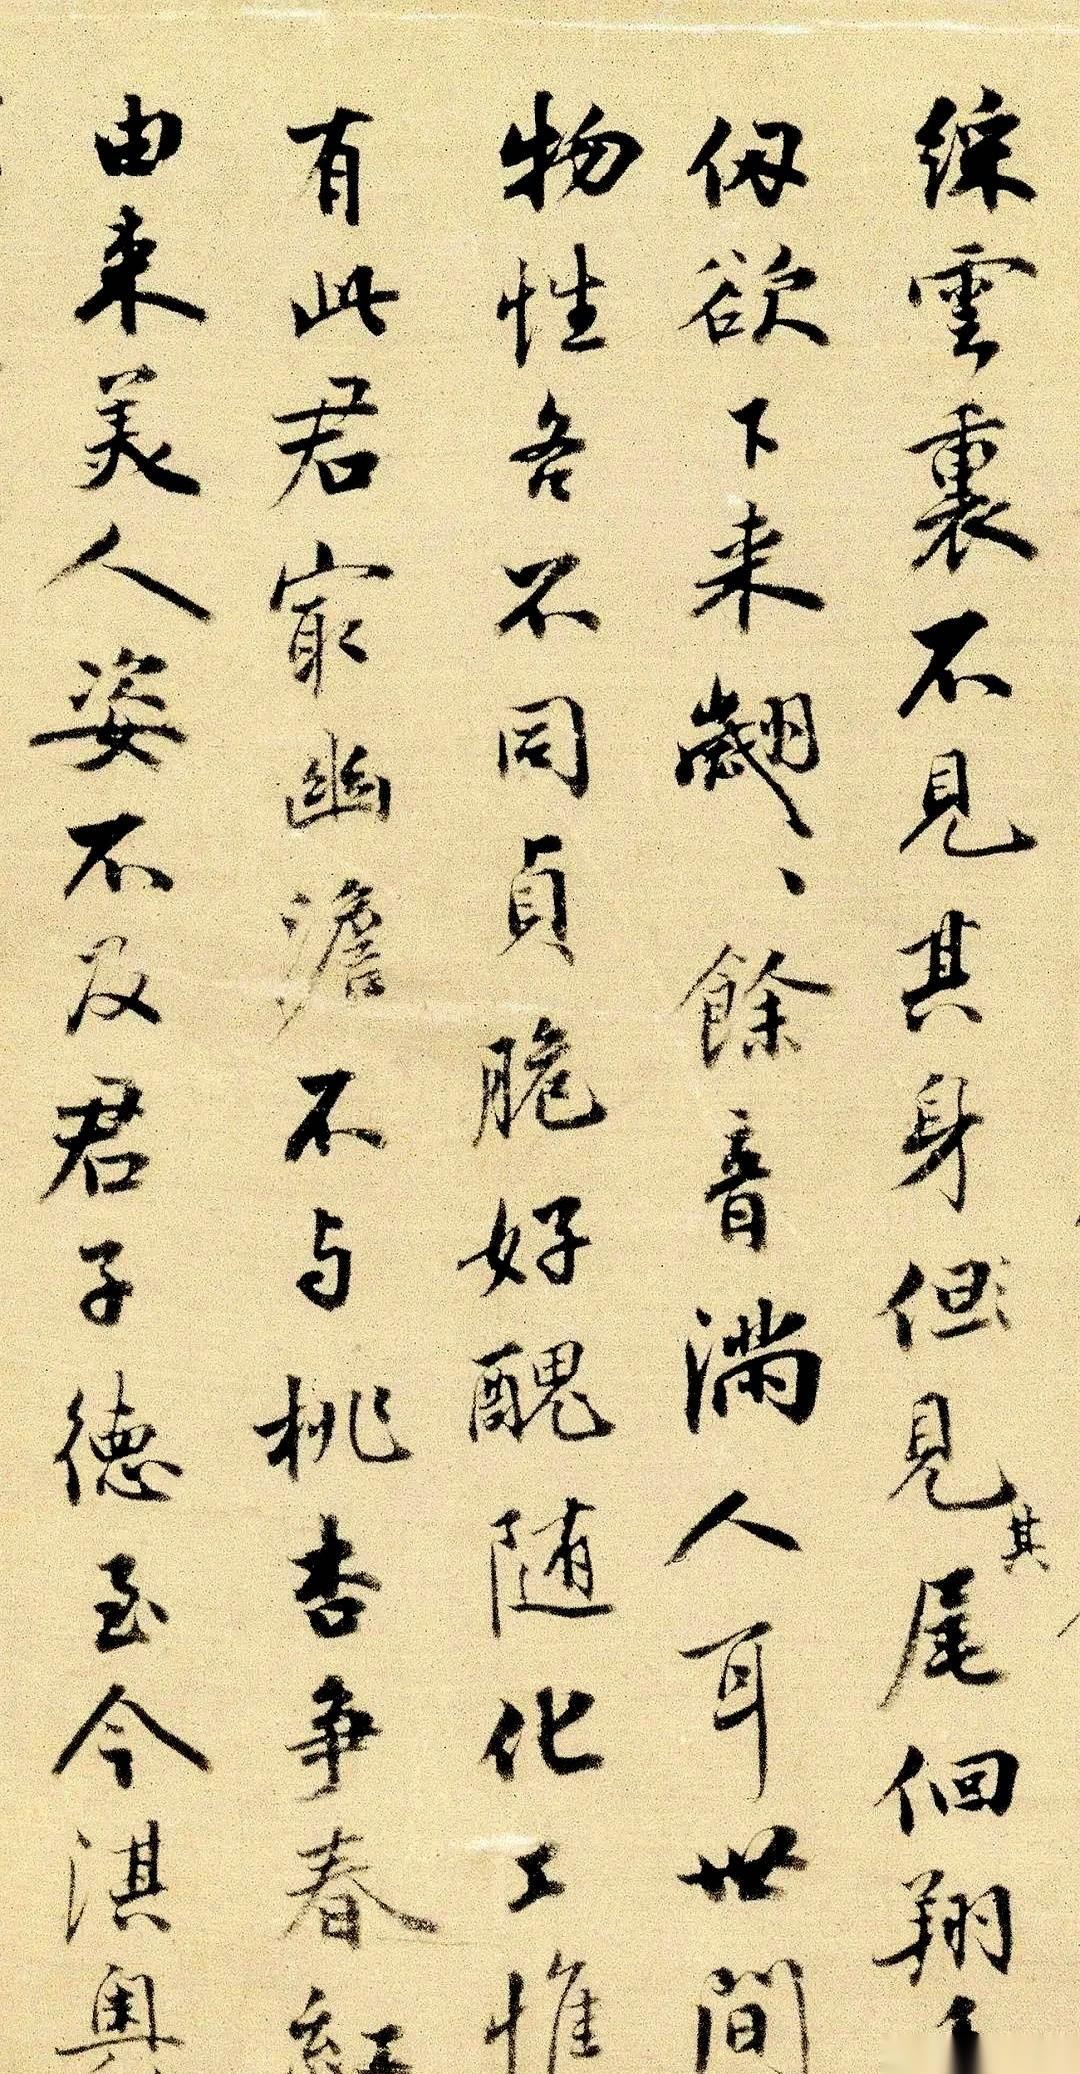 綵雲裏不見其身但見其尾佪翔
仭欲下来翽〻餘音满人耳世間
物性各不同貞脆好醜随化工惟
有此君㝡幽澹不与桃杏争春紅
由来美人姿不及君子德至今淇奥